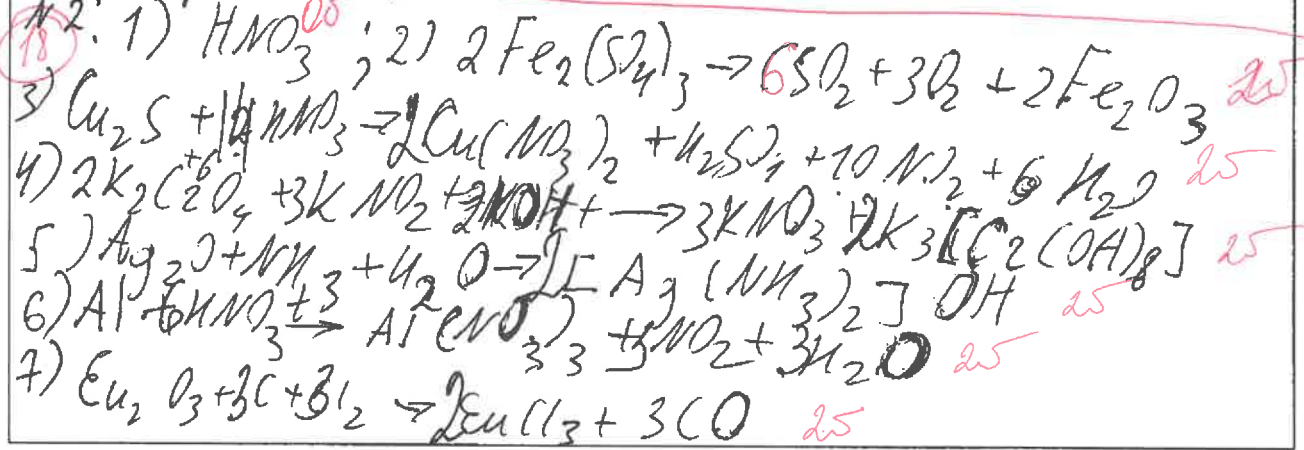 №2. 1) HNO₃ 0б ; 2) 2Fe₂(SO₄)₃ → 6SO₂ + 3O₂ + 2Fe₂O₃ 2б
18
3) Cu₂S + 14HNO₃ → 2Cu(NO₃)₂ + H₂SO₄ + 10NO₂ + 6H₂O 2б
4) 2K₂Cr⁺⁶O₄ + 3KNO₂ + 2KOH + → 3KNO₃ + 2K₃[Cr(OH)₆] 2б
5) Ag₂O + NH₃ + H₂O → 2[Ag(NH₃)₂]OH 2б
6) Al + 6HNO₃ t→ Al(NO₃)₃ + 3NO₂ + 3H₂O 2б
7) Eu₂O₃ + 3C + 3Cl₂ → 2EuCl₃ + 3CO 2б